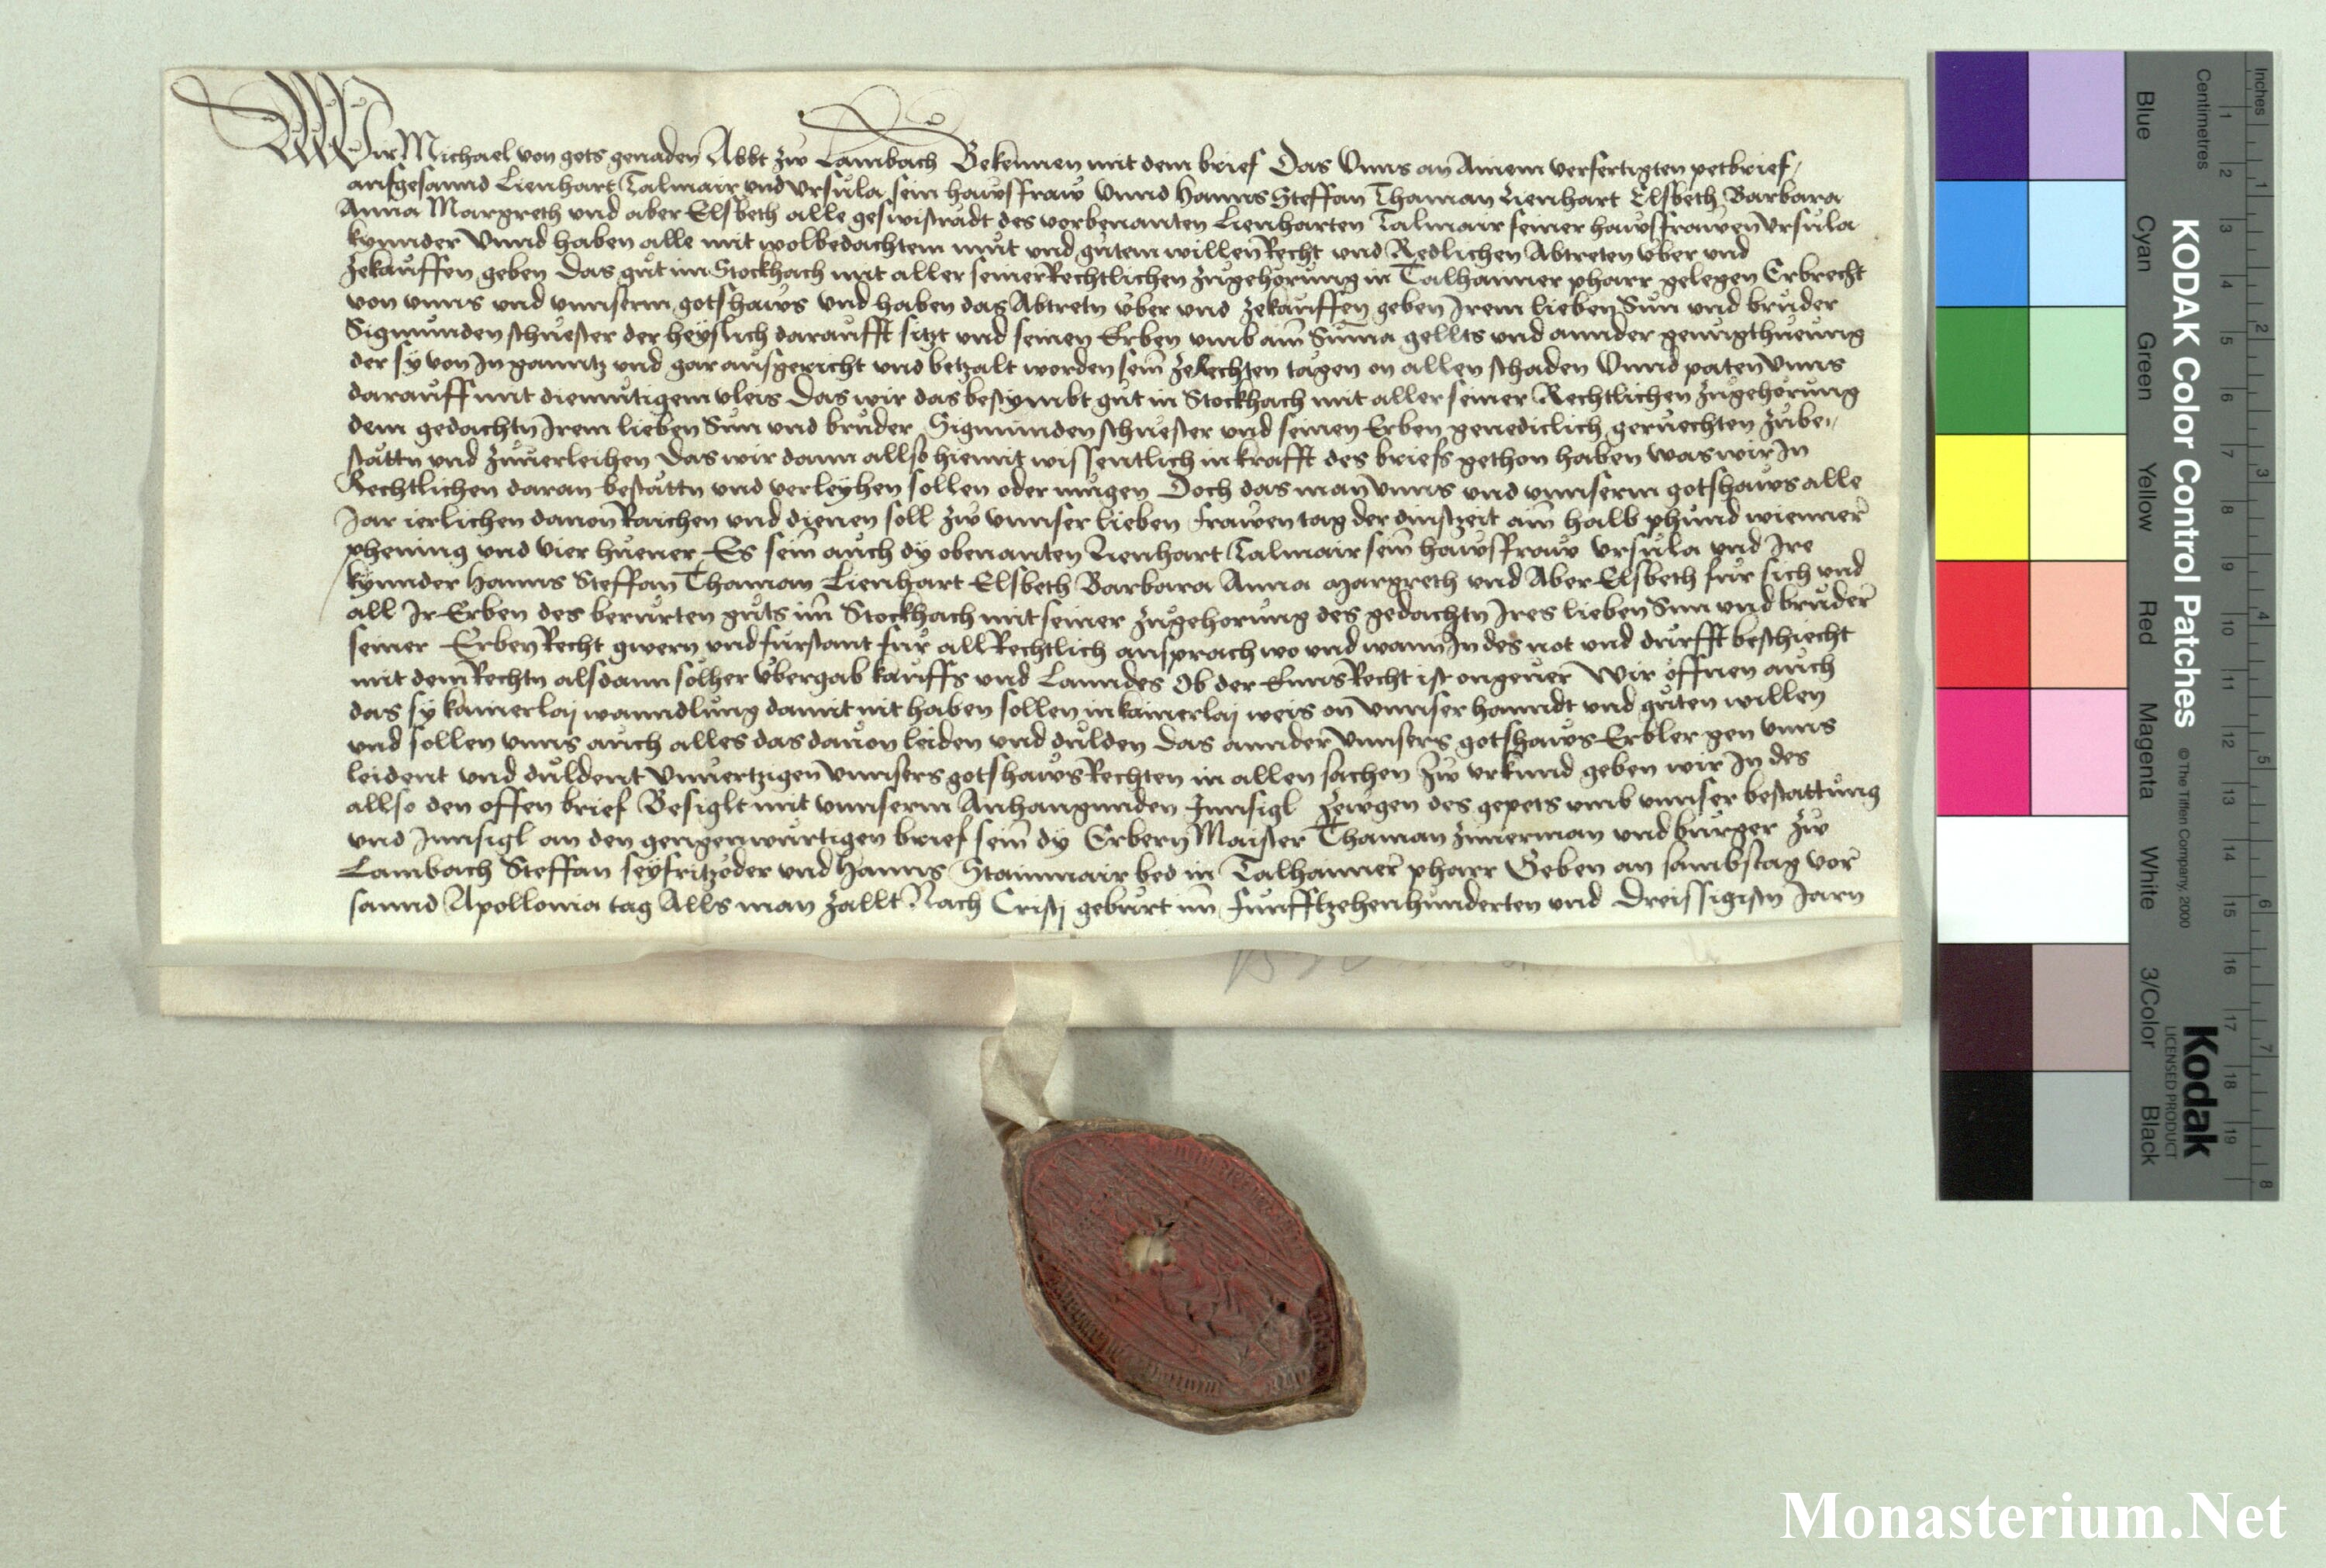 Wir Michael von gots genaden Abbt zw Lambach Bekennen mit dem brief Das Unns an Ainem verfertigten petbrief
aufgesannd Lienhart Talmair und Ursula sein hawsfraw Unnd Hanns Steffan Thaman Lienhart Elsbeth Barbara
Anna Margreth und aber Elsbeth alle geswistradt des vorbenanten Lienharten Talmair seiner hawsfrawen Ursula
kynnder Unnd haben alle mit wolbedachtem mut und gutem willen Recht und Redlichen Abtreten uber und
zekauffen geben Das gut im Stockhach mit aller seiner Rechtlichen zugehorung in Talhaimer pharr gelegen Erbrecht
von unns und unnserm gotshaws und haben das Abtretn uber und zekauffen geben Irem lieben Sun und bruder
Sigmunden schuester der heyslich daraufft sitzt und seinen Erben umb ain Suma gellts und annder genugthueung
der sy von In ganntz und gar ausgericht und betzalt worden sein ze Rechten tagen on allen schaden Unnd paten Unns
darauff mit diemutigem vleis Das wir das bestymbt gut in Stockhach mit aller seiner Rechtlichen zugehorung
dem gedachtn Irem lieben Sun und bruder Sigmunden schuester und seinen Erben genediclich geruechten zube
stattn und zuuerleihen Das wir dann allso hiemit wissentlich in krafft des briefs gethon haben was wir In
Rechtlichen daran bestattn und verleyhen sollen oder mugen Doch das man Unns und unnserm gotshaws alle
Jar ierlichen dauon Raichen und dienen soll zw unnser lieben frawen tag der dinstzeit ain halb phund wienner
phening und vier huener Es sein auch dy obenanten Lienhart Talmair sein hawsfraw Ursula und Ire
kynnder Hanns Steffan Thaman Lienhart Elsbeth Barbara Anna Margreth und Aber Elsbeth fur sich und
all Ir Erben des berurten guts im Stockhach mit seiner zugehorung des gedachtn Ires lieben Sun und bruder
seiner Erben Recht gwern und furstant fur all Rechtlich ansprach wo und wann In des not und durfft beschiecht
mit dem Rechtn alsdann solher Ubergab kauffs und Lanndes Ob der Enns Recht ist ongeuer Wir offnen auch
das sy kainerlaj wanndlung damit nit haben sollen in kainerlaj weis on Unnser hanndt und guten willen
und sollen unns auch alles das dauon leiden und dulden Das annder Unnsers gotshaws Erbler gen unns
leident und duldent Unuertzigen Unnsers gotshaws Rechten in allen sachen Zw urkund geben wir In des
allso den offen brief Besiglt mit unnserm Anhangunden Innsigl Zewgen des gepets umb unnser bestattung
und Innsigl an den gengenwurtigen brief sein dy Erbern Maister Thaman Zimerman und burger zw
Lambach Steffan seyfritzoder und Hanns Stainmair bed in Talhaimer pharr Geben an sambstag vor
sannd Apollonia tag Alls man zallt Nach Cristj geburt im Funfftzehenhunderten und Dreissigistn Jarn
KODAK Color Control Patches
© The Tiffen Company, 2000
Kodak
LICENSED PRODUCT
Blue
Cyan
Green
Yellow
Red
Magenta
White
3/Color
Black
Inches
Centimetres
1 2 3 4 5 6 7 8 9 10 11 12 13 14 15 16 17 18 19
1 2 3 4 5 6 7 8
Monasterium.Net